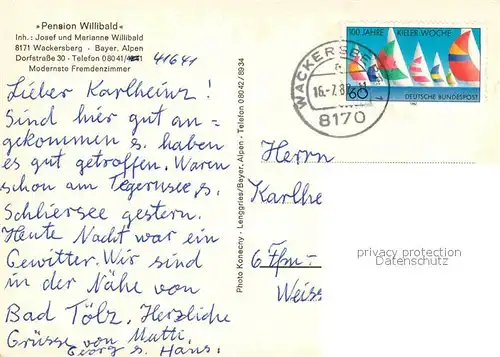 »Pension Willibald«
Inh.: Josef und Marianne Willibald
8171 Wackersberg - Bayer. Alpen
Dorfstraße 30 - Telefon 08041/ 41641
Modernste Fremdenzimmer
Lieber Karlheinz!
Sind hier gut an=
gekommen s. haben
es gut getroffen. Waren
schon am Tegernsee, s.
Schliersee gestern.
Heute Nacht war ein
Gewitter. Wir sind
in der Nähe von
Bad Tölz. Herzliche
Grüsse von Mutti,
Georg s. Hans.
Photo Konecny - Lenggries/Bayer. Alpen - Telefon 08042/8934
100 JAHRE KIELER WOCHE
60
DEUTSCHE BUNDESPOST
WACKERSBE
16.-7.8
8170
Herrn
Karlhe
6 Ffm-
Weiss
privacy protection
Datenschutz